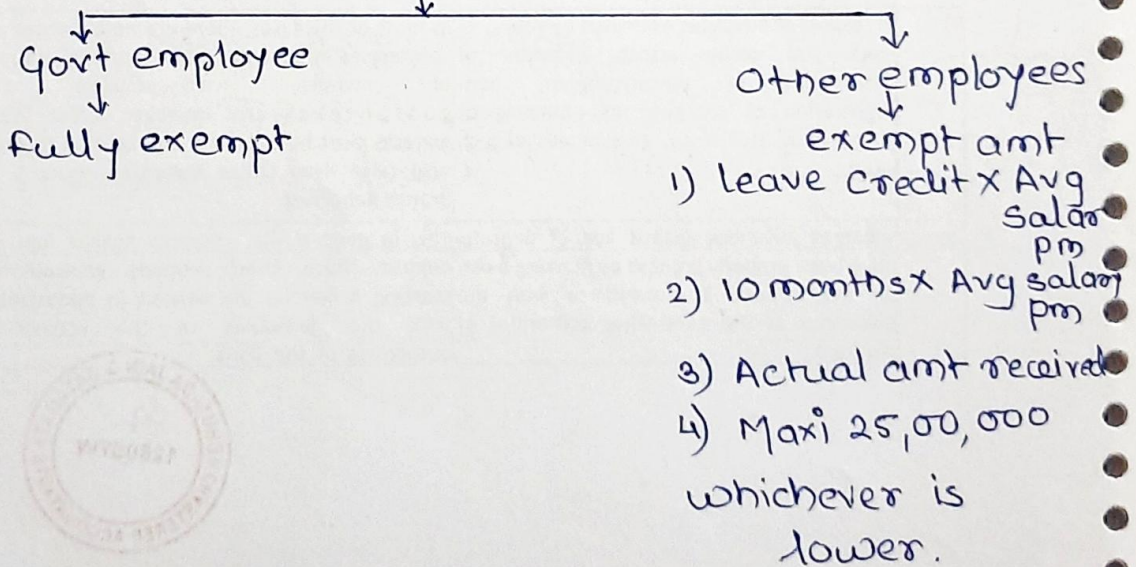 Govt employee
fully exempt
Other employees
exempt amt
1) leave credit x Avg
Salar
pm
2) 10 months x Avg salary
pm
3) Actual amt received
4) Maxi 25,00,000
whichever is
lower.